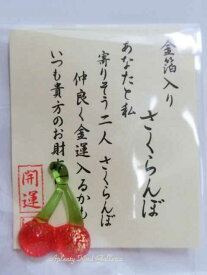 金箔入り
さくらんぼ
あなたと私
寄りそう二人 さくらんぼ
仲良く金運入るかも
いつも貴方のお財
開運